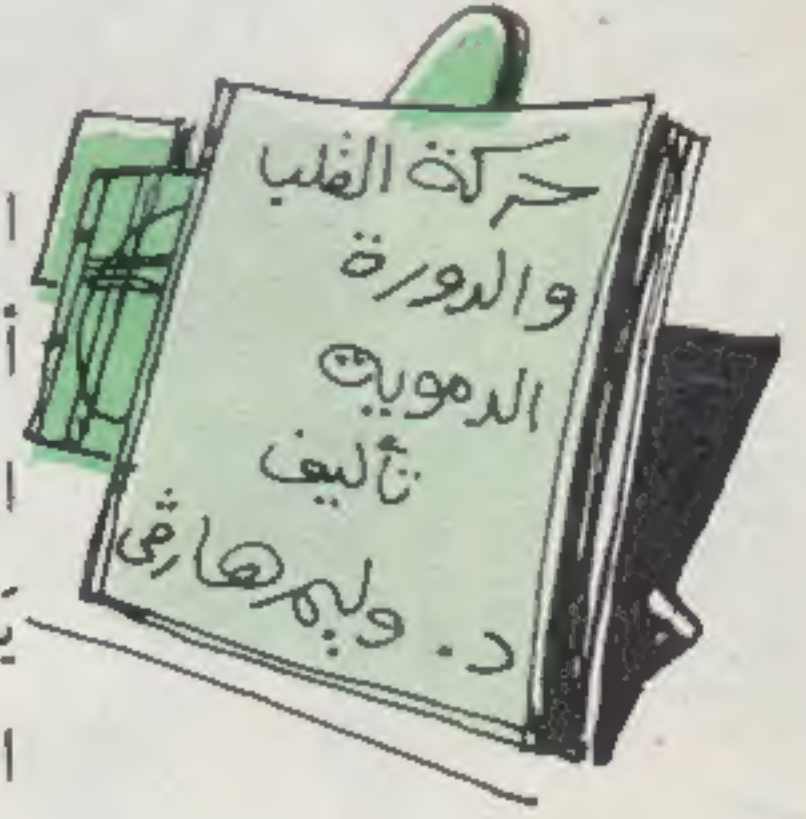 حركة القلب
والدورة
الدموية
تأليف
د. وليم هارڤي